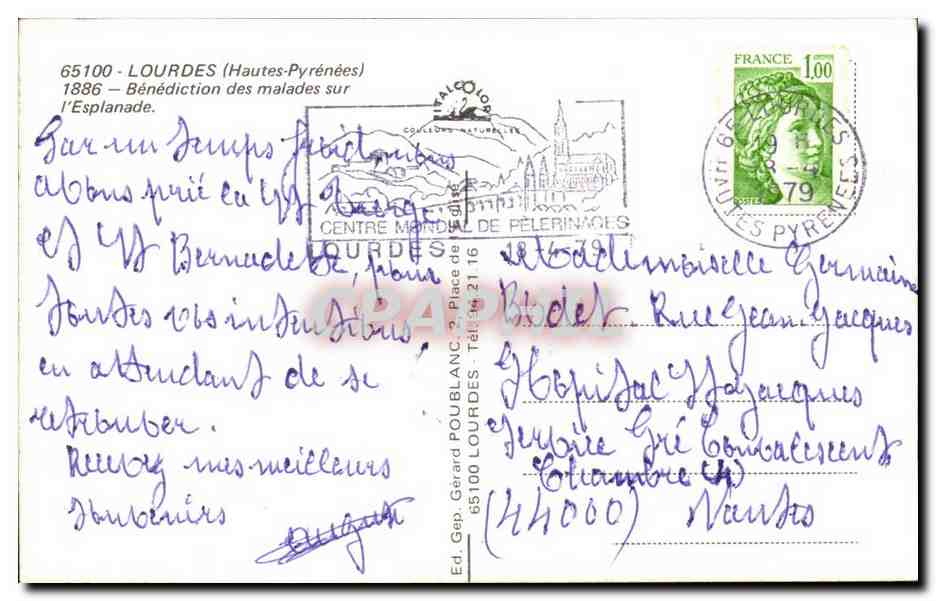 65100 - LOURDES (Hautes-Pyrénées)
1886 – Bénédiction des malades sur
l'Esplanade.
ITALCOLOR
COULEURS NATURELLES
CENTRE MONDIAL DE PÈLERINAGES
LOURDES 18-4-79
FRANCE 1,00
POSTES
65 LOURDES
19 H
18-4
79
HAUTES PYRENEES
Par un temps froid nous
avons prié la St Vierge
et St Bernadette, pour
toutes vos intentions
en attendant de se
retrouver.
Recevez mes meilleurs
souvenirs
Ed. Gep. Gérard POUBLANC. 2, Place de l'Église
65100 LOURDES - Tél. 94.21.16
CPAPHIL
Mademoiselle Germaine
Bidet. Rue Jean. Jacques
Hopital St Jacques
Service Convalescents
Chambre (4)
(44000) Nantes